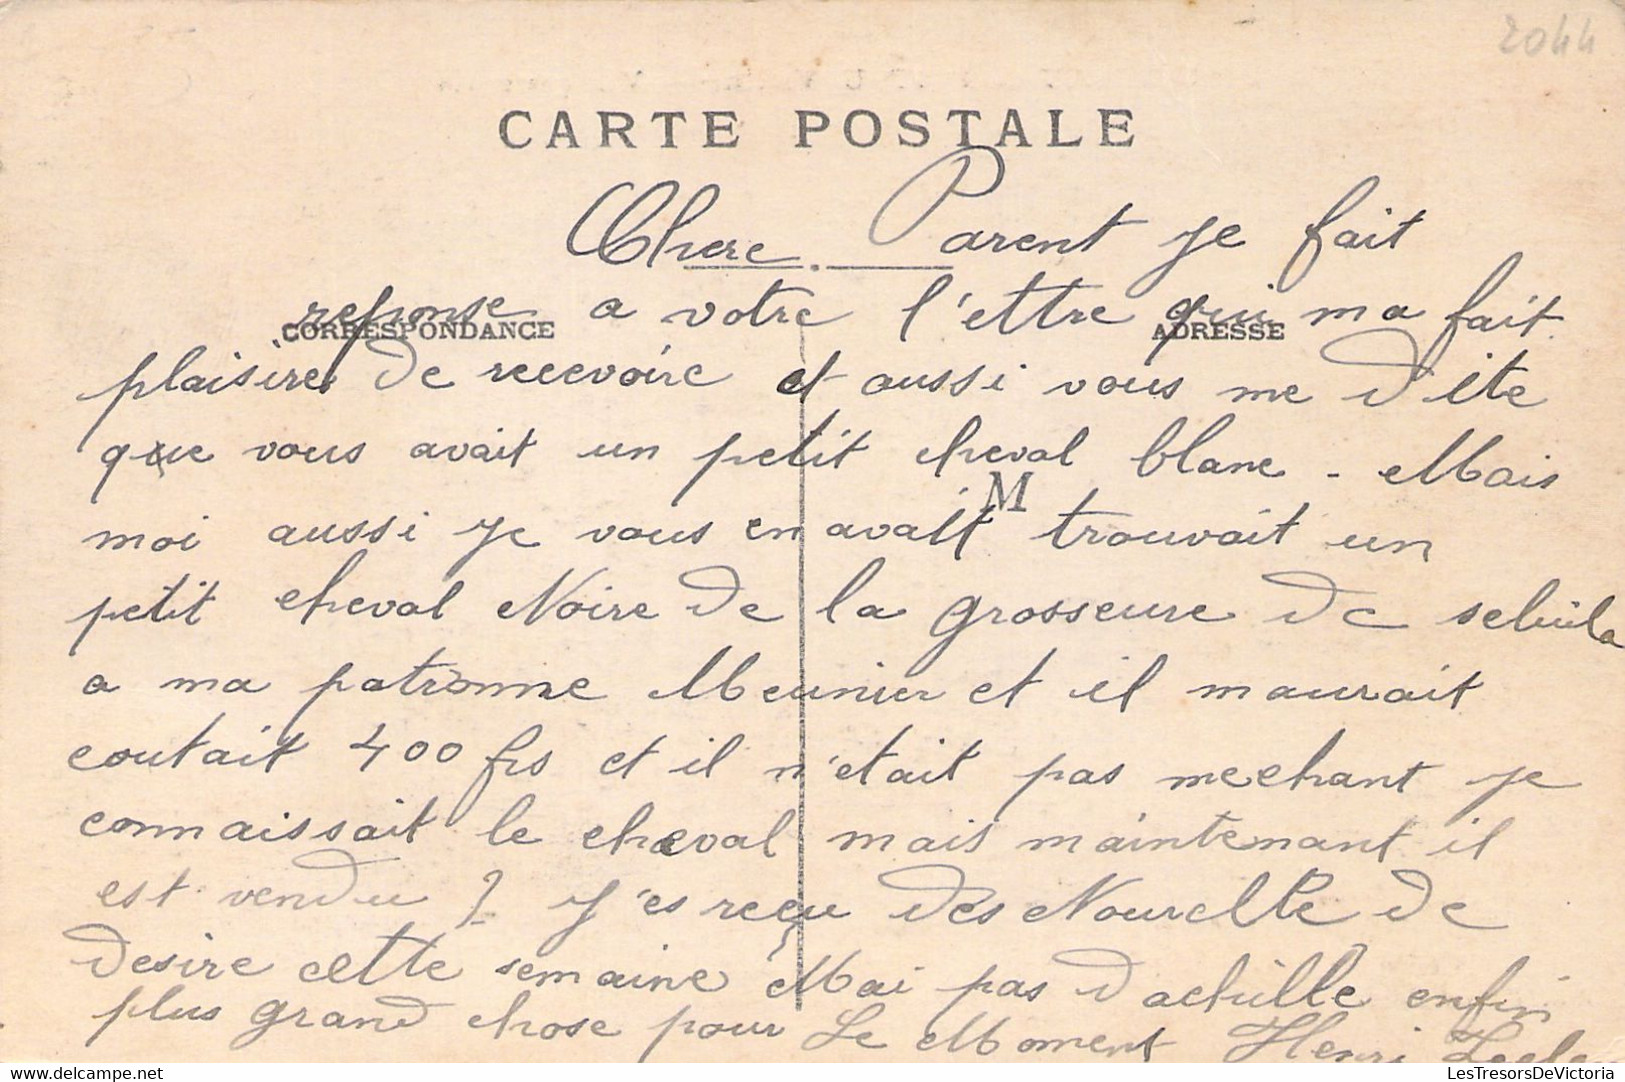 2044
CARTE POSTALE
Chere Parent je fait
reponse a votre l'ettre qui ma fait
CORRESPONDANCE ADRESSE
plaisire de recevoire et aussi vous me d'ite
que vous avait un petit cheval blanc - Mais
M
moi aussi je vous en avait trouvait un
petit cheval Noire de la grosseure de seluila
a ma patronne Meunier et il maurait
coutait 400 frs et il n'etait pas mechant je
connaissait le cheval mais maintenant il
est vendu J'es reçu des Nouvelle de
desire cette semaine Mai pas d'achille enfin
plus grand chose pour Le Moment Henri
delcampe.net LesTresorsDeVictoria